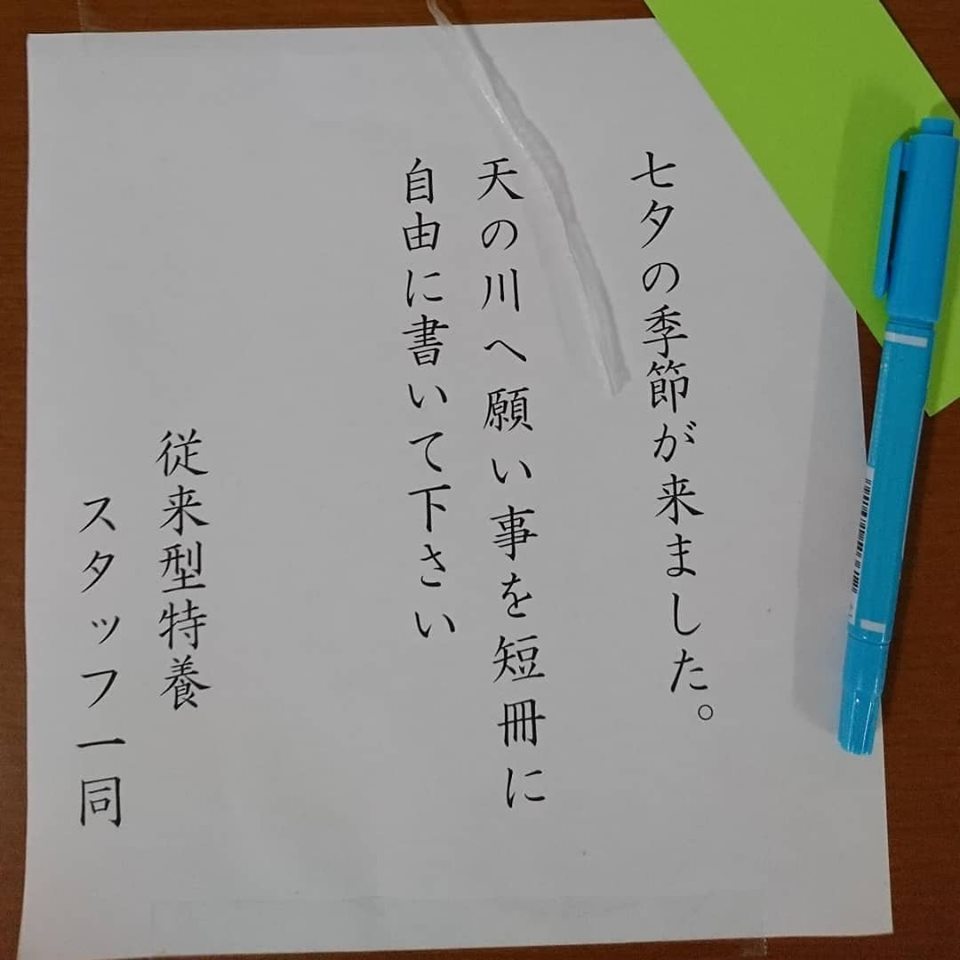 七夕の季節が来ました。
天の川へ願い事を短冊に
自由に書いて下さい
従来型特養
スタッフ一同